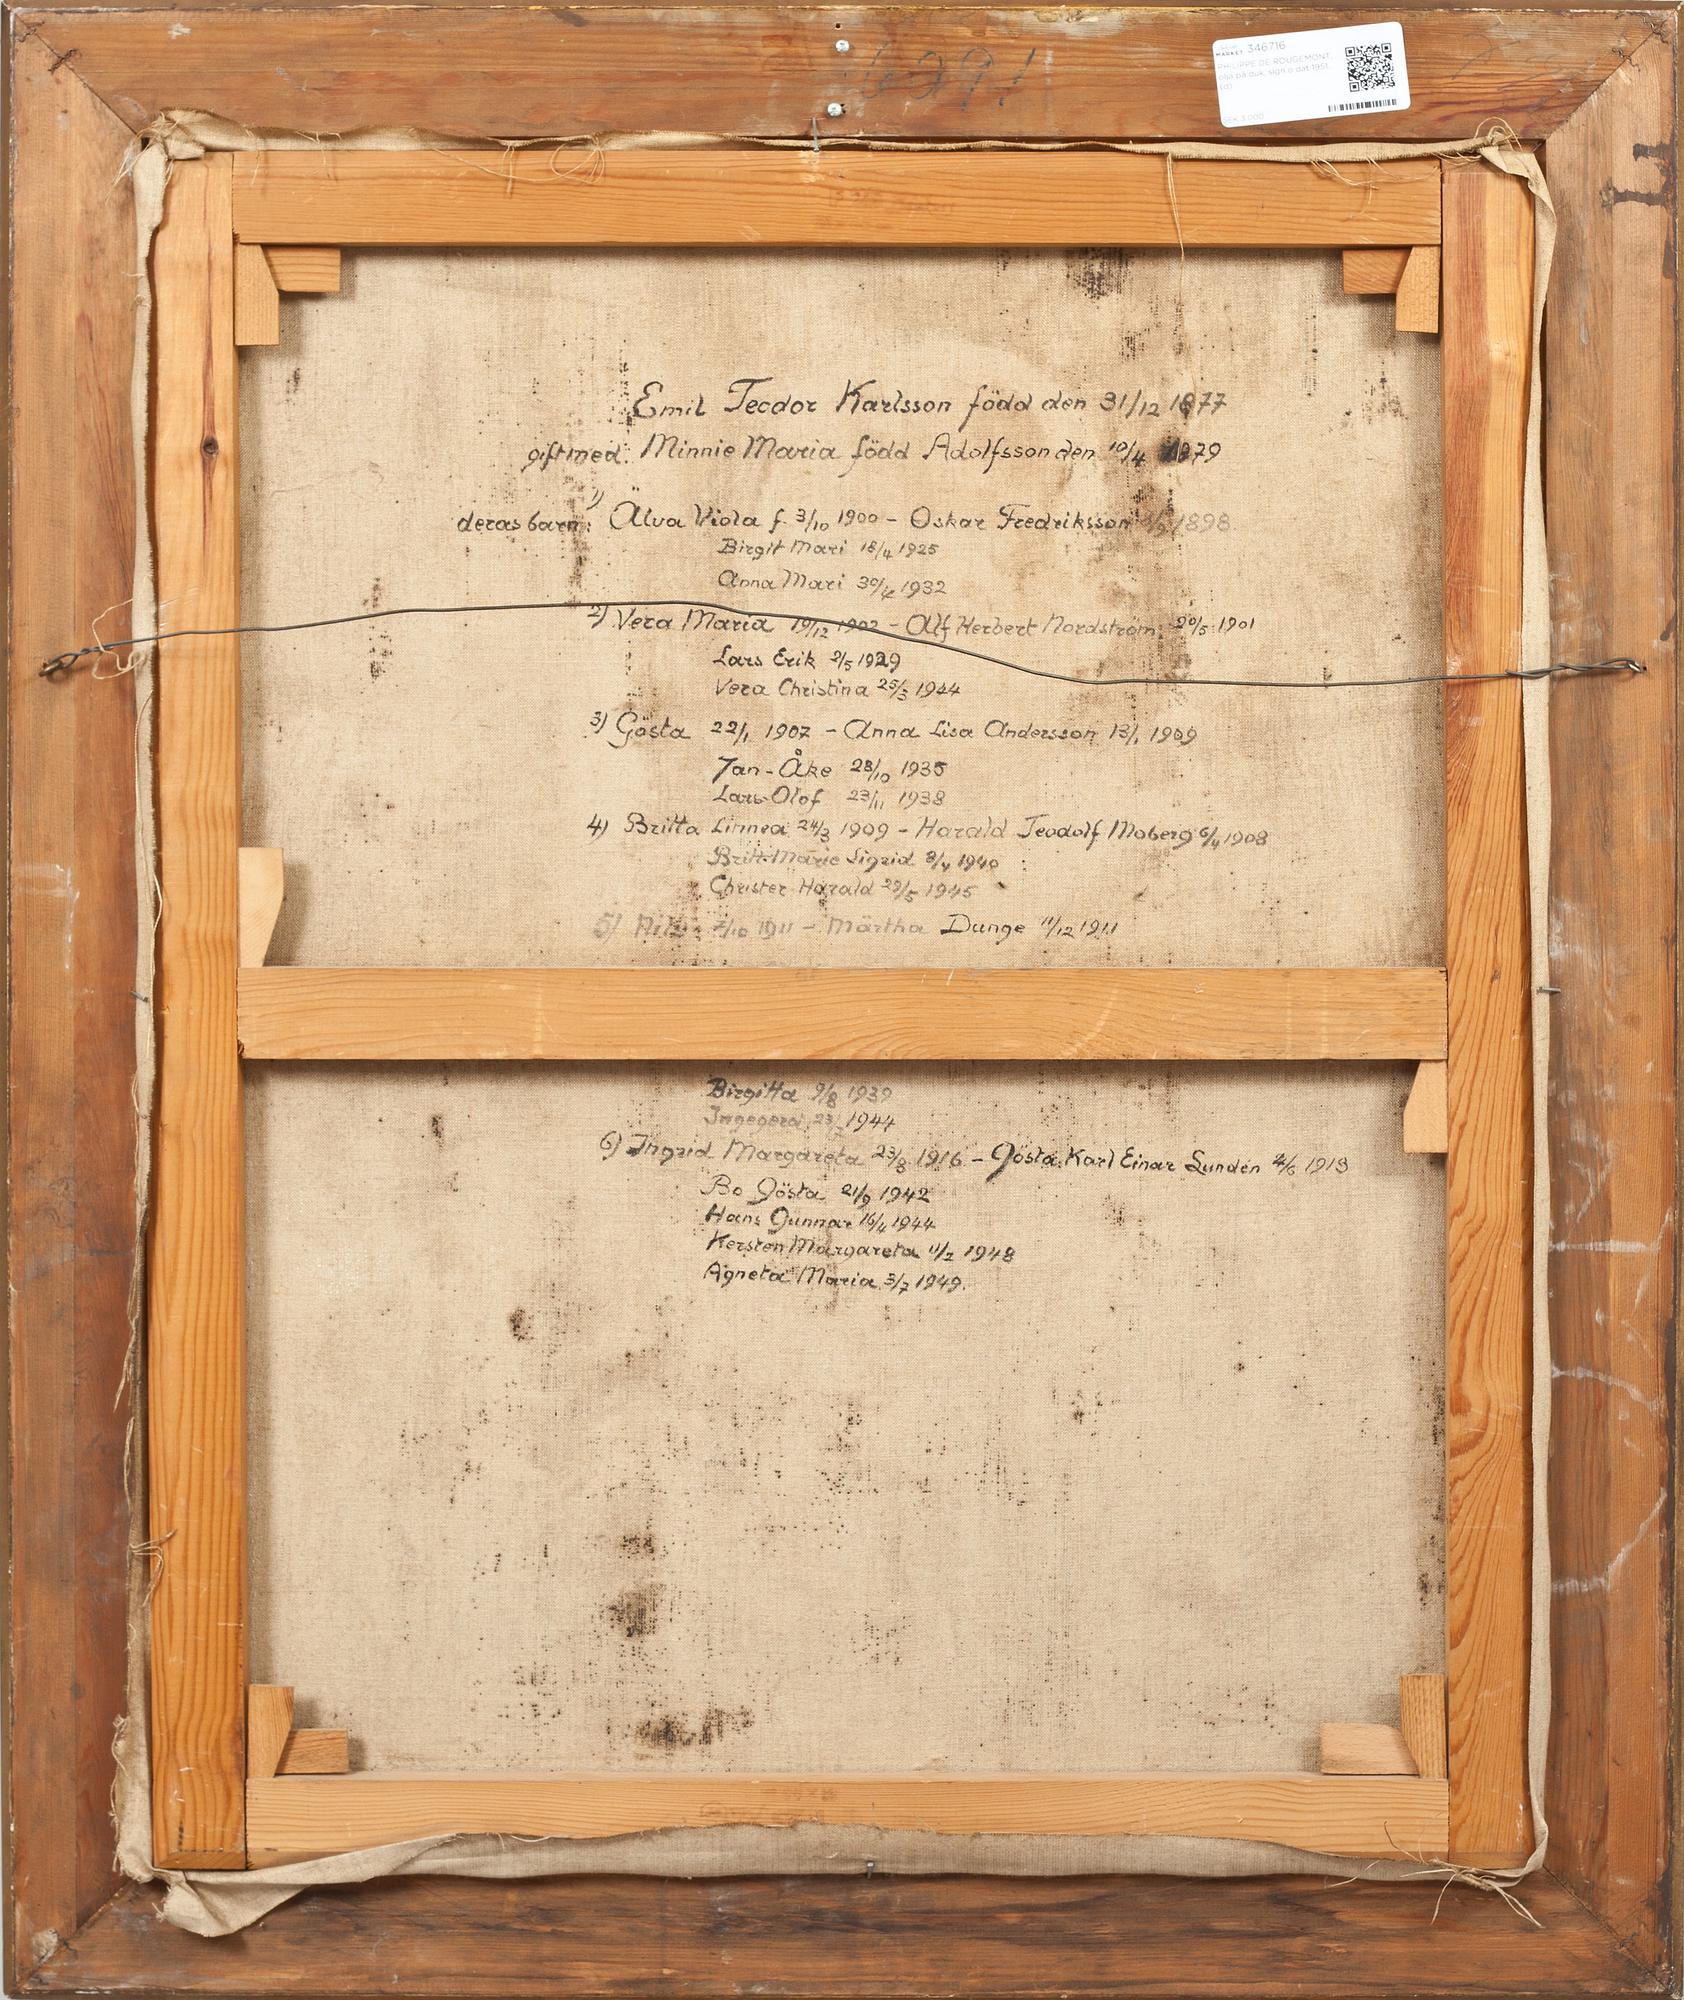 6091
MARKET 346716
PHILIPPE DE ROUGEMONT,
olja på duk, sign o dat 1951.
(d)
SEK 3.000
Emil Teodor Karlsson född den 31/12 1877
gift med Minnie Maria född Adolfsson den 10/4 1879
deras barn: 1) Alva Viola f. 3/10 1900 - Oskar Fredriksson 1898
Birgit Mari 18/4 1925
Anna Mari 30/4 1932
2) Vera Maria 19/12 1902 - Alf Herbert Nordström 20/5 1901
Lars Erik 2/5 1929
Vera Christina 25/3 1944
3) Gösta 22/1 1907 - Anna Lisa Andersson 13/1 1909
Jan-Åke 28/10 1935
Lars-Olof 23/11 1938
4) Britta Linnea 24/3 1909 - Harald Teodolf Moberg 6/4 1908
Britt-Marie Sigrid 8/4 1940
Christer Harald 29/5 1945
5) Nils 7/10 1911 - Märtha Dunge 11/12 1911
Birgitta 9/8 1939
Ingegerd 1944
6) Ingrid Margareta 23/8 1916 - Gösta Karl Einar Lundén 1913
Bo Gösta 21/9 1942
Hans Gunnar 16/4 1944
Kersten Margareta 11/2 1948
Agneta Maria 3/7 1949.